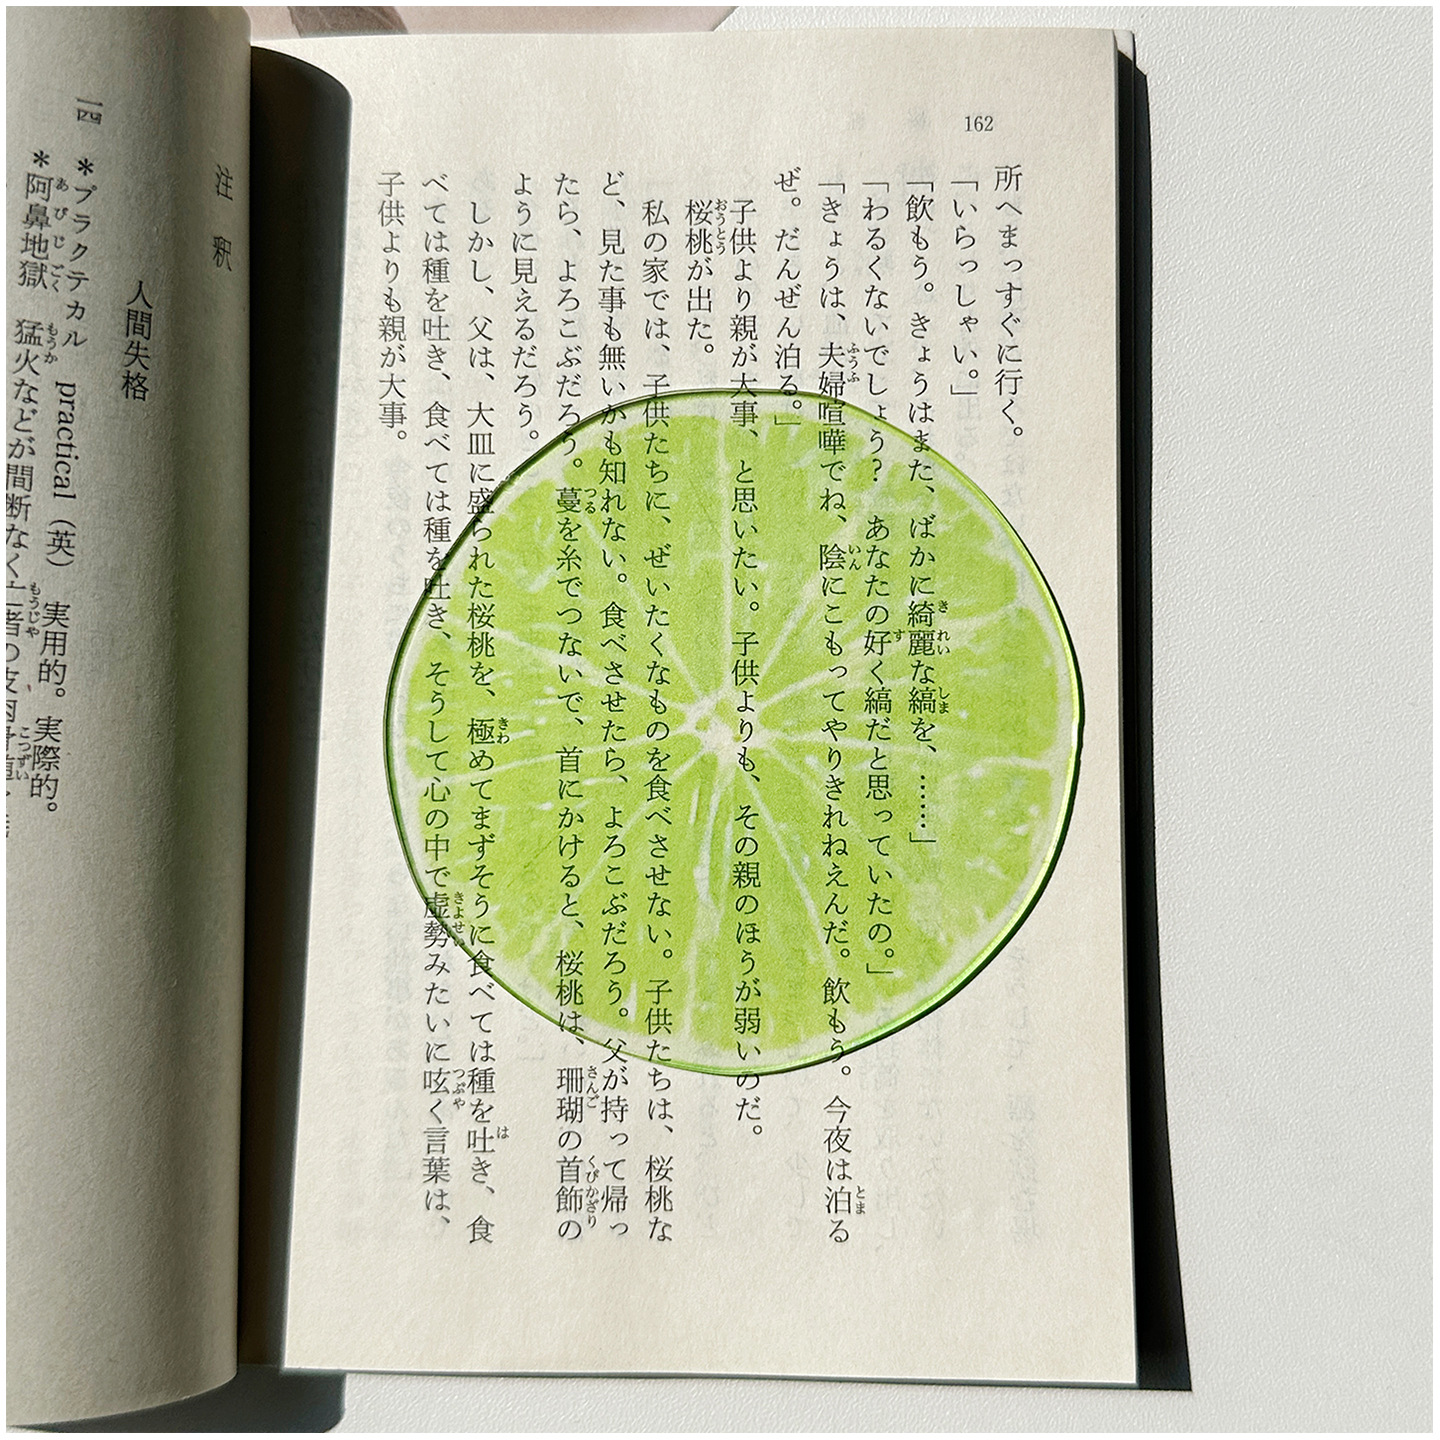 162
所へまっすぐに行く。
「いらっしゃい。」
「飲もう。きょうはまた、ばかに綺麗な縞を、……」
「わるくないでしょう? あなたの好く縞だと思っていたの。」
「きょうは、夫婦喧嘩でね、陰にこもってやりきれねえんだ。飲もう。今夜は泊る
ぜ。だんぜん泊る。」
子供より親が大事、と思いたい。子供よりも、その親のほうが弱いのだ。
桜桃が出た。
私の家では、子供たちに、ぜいたくなものを食べさせない。子供たちは、桜桃な
ど、見た事も無いかも知れない。食べさせたら、よろこぶだろう。父が持って帰っ
たら、よろこぶだろう。蔓を糸でつないで、首にかけると、桜桃は、珊瑚の首飾の
ように見えるだろう。
しかし、父は、大皿に盛られた桜桃を、極めてまずそうに食べては種を吐き、食
べては種を吐き、食べては種を吐き、そうして心の中で虚勢みたいに呟く言葉は、
子供よりも親が大事。
注釈
人間失格
一四 *プラクテカル practical（英） 実用的。実際的。
*阿鼻地獄 猛火などが間断なく亡者の皮肉骨髄